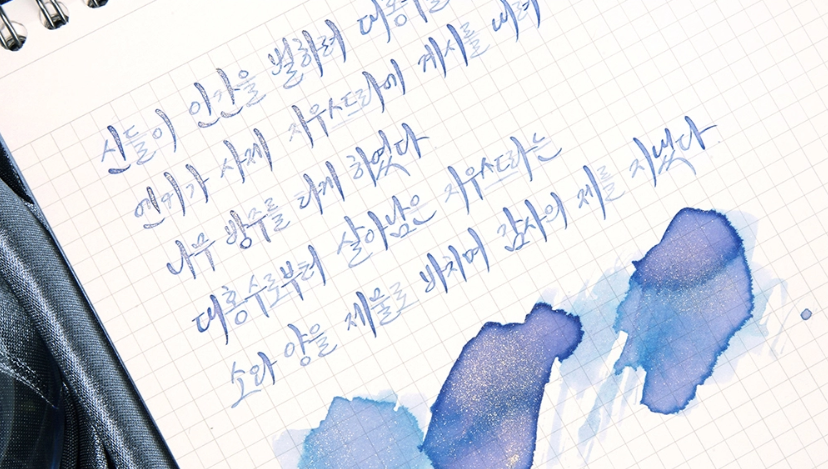 신들이 인간을 벌하려 대홍수를
엔키가 사제 지우스드라에 계시를 내려
나무 방주를 타게 하였다
대홍수로부터 살아남은 지우스드라는
소와 양을 제물로 바치며 감사의 제를 지냈다